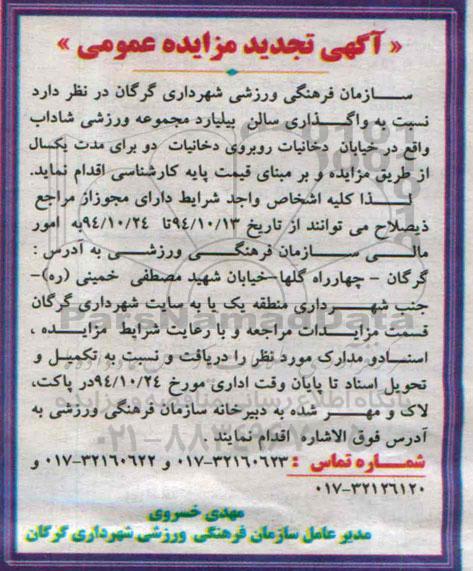 « آگهی تجدید مزایده عمومی »
سازمان فرهنگی ورزشی شهرداری گرگان در نظر دارد
نسبت به واگذاری سالن بیلیارد مجموعه ورزشی شاداب
واقع در خیابان دخانیات روبروی دخانیات دو برای مدت یکسال
از طریق مزایده و بر مبنای قیمت پایه کارشناسی اقدام نماید.
لذا کلیه اشخاص واجد شرایط دارای مجوزاز مراجع
ذیصلاح می توانند از تاریخ ۹۴/۱۰/۱۳تا ۹۴/۱۰/۲۴به امور
مالی سازمان فرهنگی ورزشی به آدرس :
گرگان - چهارراه گلها-خیابان شهید مصطفی خمینی (ره)-
جنب شهرداری منطقه یک یا به سایت شهرداری گرگان
قسمت مزایدات مراجعه و با رعایت شرایط مزایده ،
اسنادو مدارک مورد نظر را دریافت و نسبت به تکمیل و
تحویل اسناد تا پایان وقت اداری مورخ ۹۴/۱۰/۲۴در پاکت،
لاک و مهر شده به دبیرخانه سازمان فرهنگی ورزشی به
آدرس فوق الاشاره اقدام نمایند .
شماره تماس : ۳۲۱۶۰۶۲۳-۰۱۷ و ۳۲۱۶۰۶۲۲-۰۱۷ و
۳۲۱۲۶۱۲۰-۰۱۷
مهدی خسروی
مدیر عامل سازمان فرهنگی ورزشی شهرداری گرگان
ParsNamadData